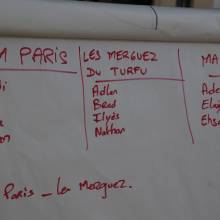 M PARIS
LES MERGUEZ
DU TURFU
Adlan
Brad
Ilyès
Nathan
MA
Ade
Paris _ les Merguez.